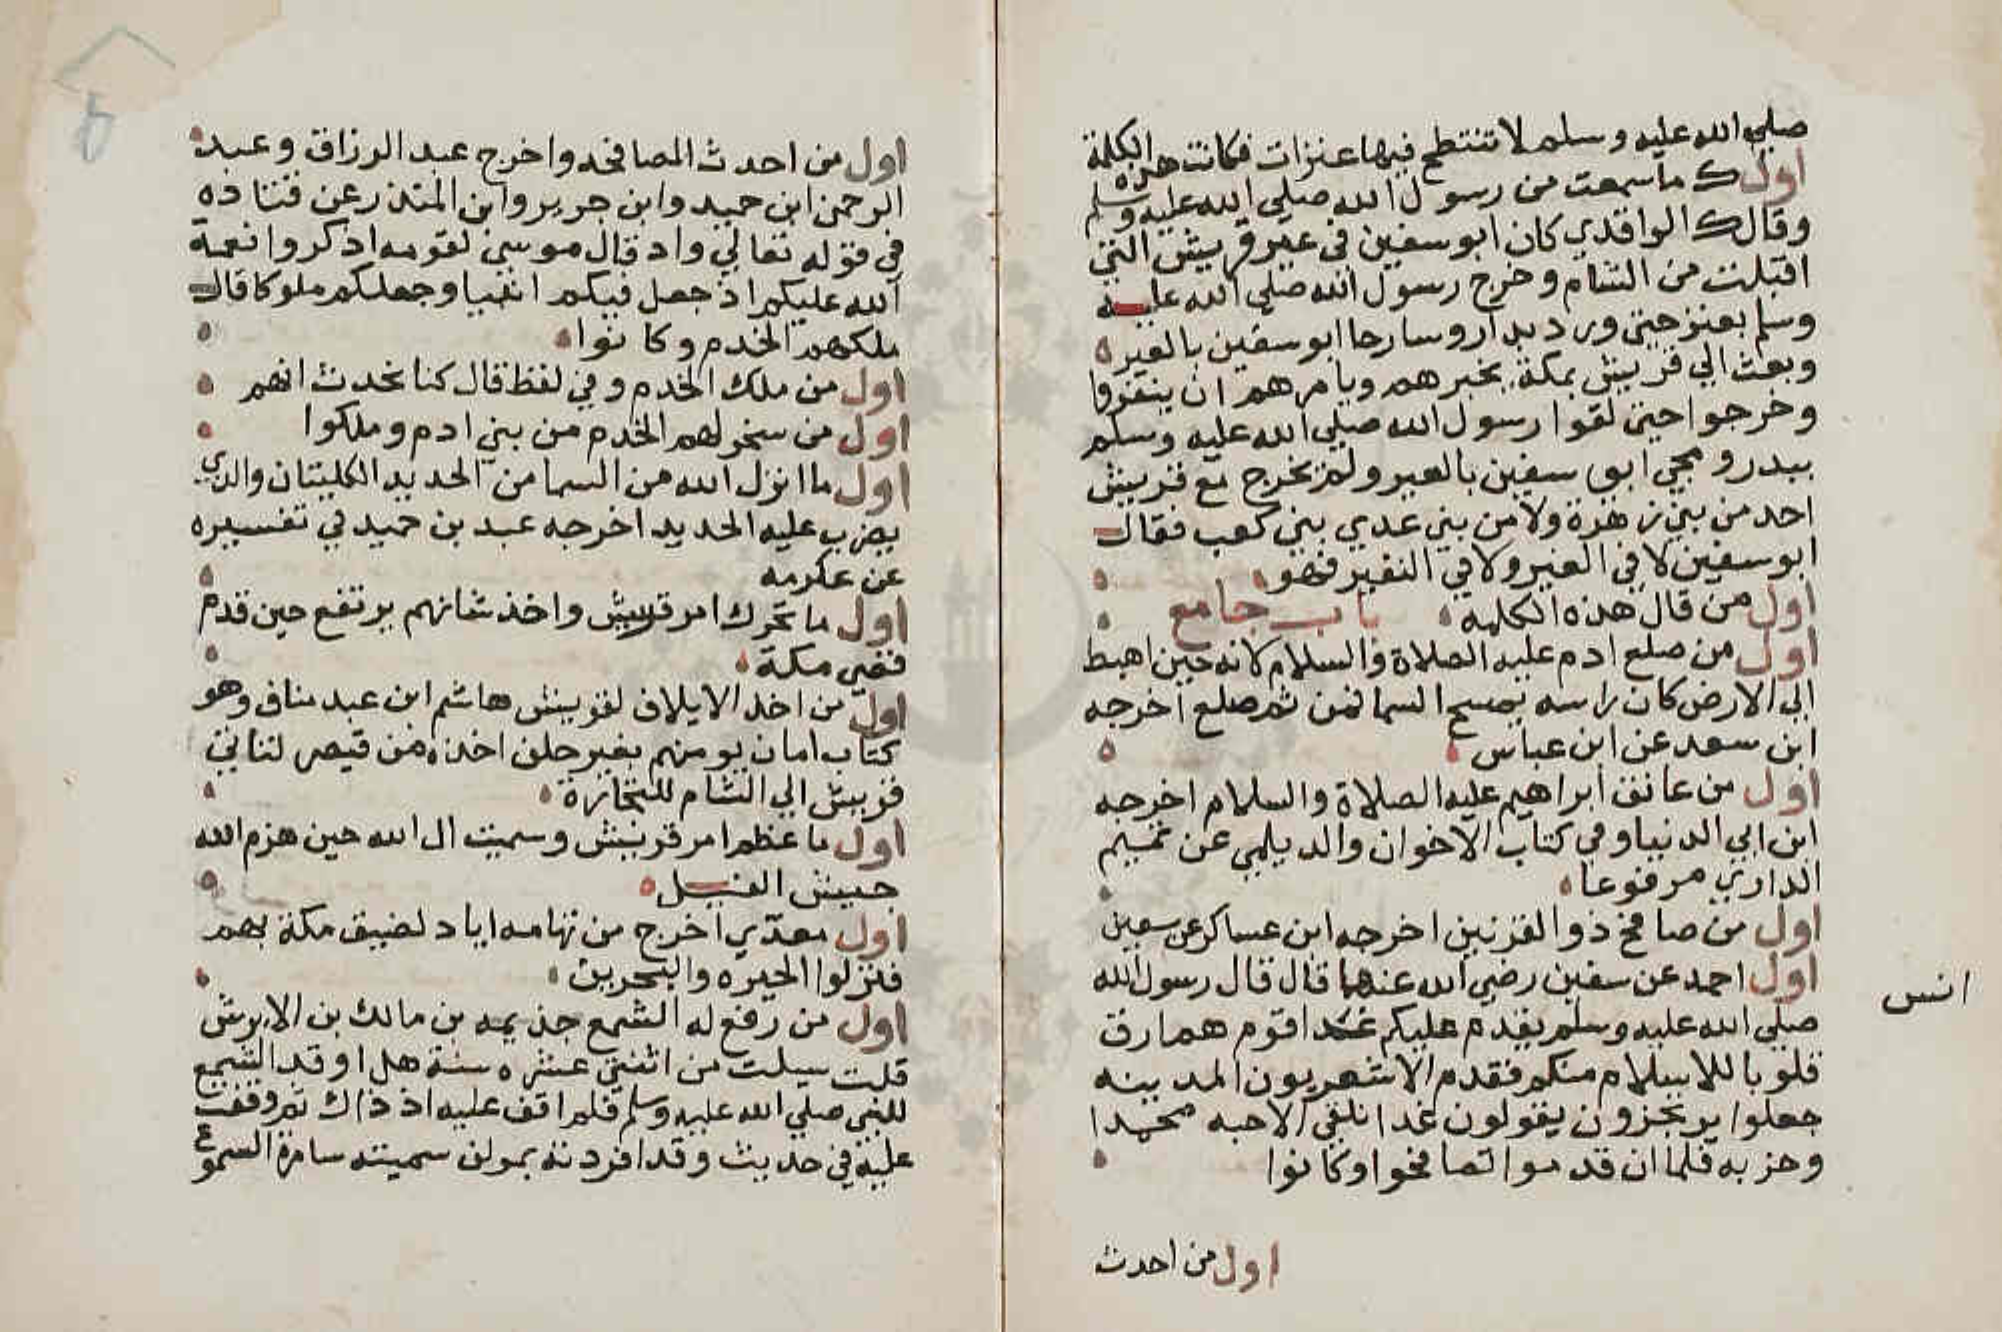 صلي الله عليه وسلم لا تنتطح فيها عنزات فكانت هذه الكلمة
اول ما سمعت من رسول الله صلي الله عليه وسلم
وقال الواقدي كان ابو سفين في عير قريش التي
اقبلت من الشام وخرج رسول الله صلي الله عليه
وسلم حتي ورد بدار وسار حا ابو سفين بالعير
وبعث الي قريش بمكة يخبرهم ويامرهم ان ينفروا
وخرجوا حتي لقوا رسول الله صلي الله عليه وسلم
ببدر ومجي ابو سفين بالعير ولم يخرج مع قريش
احد من بني زهرة ولا من بني عدي بني كعب فقال
ابو سفين لا في العير ولا في النفير فهو
اول من قال هذه الكلمة باب جامع
اول من صلع ادم عليه الصلاة والسلام لانه حين اهبط
الي الارض كان راسه يمسح السما فمن ثم صلع اخرجه
ابن سعد عن ابن عباس
اول من عانق ابراهيم عليه الصلاة والسلام اخرجه
ابن ابي الدنيا وفي كتاب الاخوان والديلمي عن تميم
الداري مرفوعا
اول من صافح ذو القرنين اخرجه ابن عساكر عن سفين
اول احمد عن سفين رضي الله عنهما قال قال رسول الله
انس
صلي الله عليه وسلم يقدم عليكم غدا اقوم هم ارق
قلوبا للاسلام منكم فقدم الاشعريون المدينه
جعلوا يرتجزون يقولون غدا نلقي الاحبه محمدا
وحزبه فلما ان قدموا تصافحوا وكانوا
اول من احدث
اول من احدث المصافحه واخرج عبد الرزاق وعبد
الرحمن ابن حميد وابن جرير وابن المنذر عن قتاده
في قوله تعالي واد قال موسي لقومه ادكروا نعمة
الله عليكم اذ جعل فيكم انبيا وجعلكم ملوكا قال
ملكهم الخدم وكانوا
اول من ملك الخدم وفي لفظ قال كنا نحدث انهم
اول من سخر لهم الخدم من بني ادم وملكوا
اول ما انزل الله من السما من الحديد الكلبتان والدي
يضرب عليه الحديد اخرجه عبد بن حميد في تفسيره
عن عكرمه
اول ما تحرك امر قريش واخذ شانهم يرتفع حين قدم
قصي مكة
اول من اخذ الايلاف لقريش هاشم ابن عبد مناف وهو
كتاب امان يومنهم بغير حلف اخذه من قيصر لتاتي
قريش الي الشام للتجارة
اول ما عظم امر قريش وسميت ال الله حين هزم الله
جيش الفيل
اول معدي اخرج من تهامه اياد لضيق مكة بهم
فنزلوا الحيره والبحرين
اول من رفع له الشمع جذيمه بن مالك بن الابرش
قلت سيلت من اثنتي عشره سنة هل اوقد الشمع
للنبي صلي الله عليه وسلم فلم اقف عليه اذ ذاك ثم وقفت
عليه في حديث وقد افردته بمولف سميته سامرة السموع